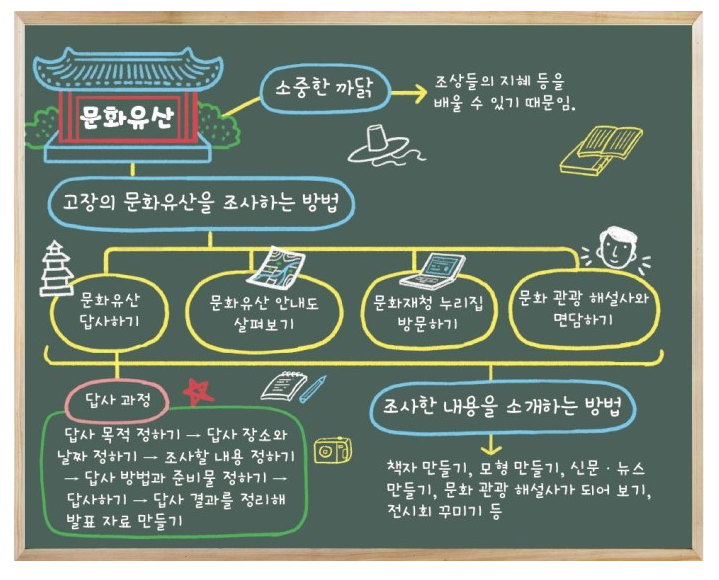 문화유산
소중한 까닭
조상들의 지혜 등을
배울 수 있기 때문임.
고장의 문화유산을 조사하는 방법
문화유산
답사하기
문화유산 안내도
살펴보기
문화재청 누리집
방문하기
문화 관광 해설사와
면담하기
답사 과정
답사 목적 정하기 → 답사 장소와
날짜 정하기 → 조사할 내용 정하기
→ 답사 방법과 준비물 정하기 →
답사하기 → 답사 결과를 정리해
발표 자료 만들기
조사한 내용을 소개하는 방법
책자 만들기, 모형 만들기, 신문·뉴스
만들기, 문화 관광 해설사가 되어 보기,
전시회 꾸미기 등